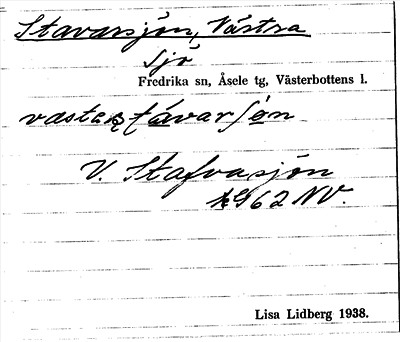 Stavarsjön, Västra
Sjö
Fredrika sn, Åsele tg, Västerbottens l.
V. Stafvasjön
62 NV.
Lisa Lidberg 1938.